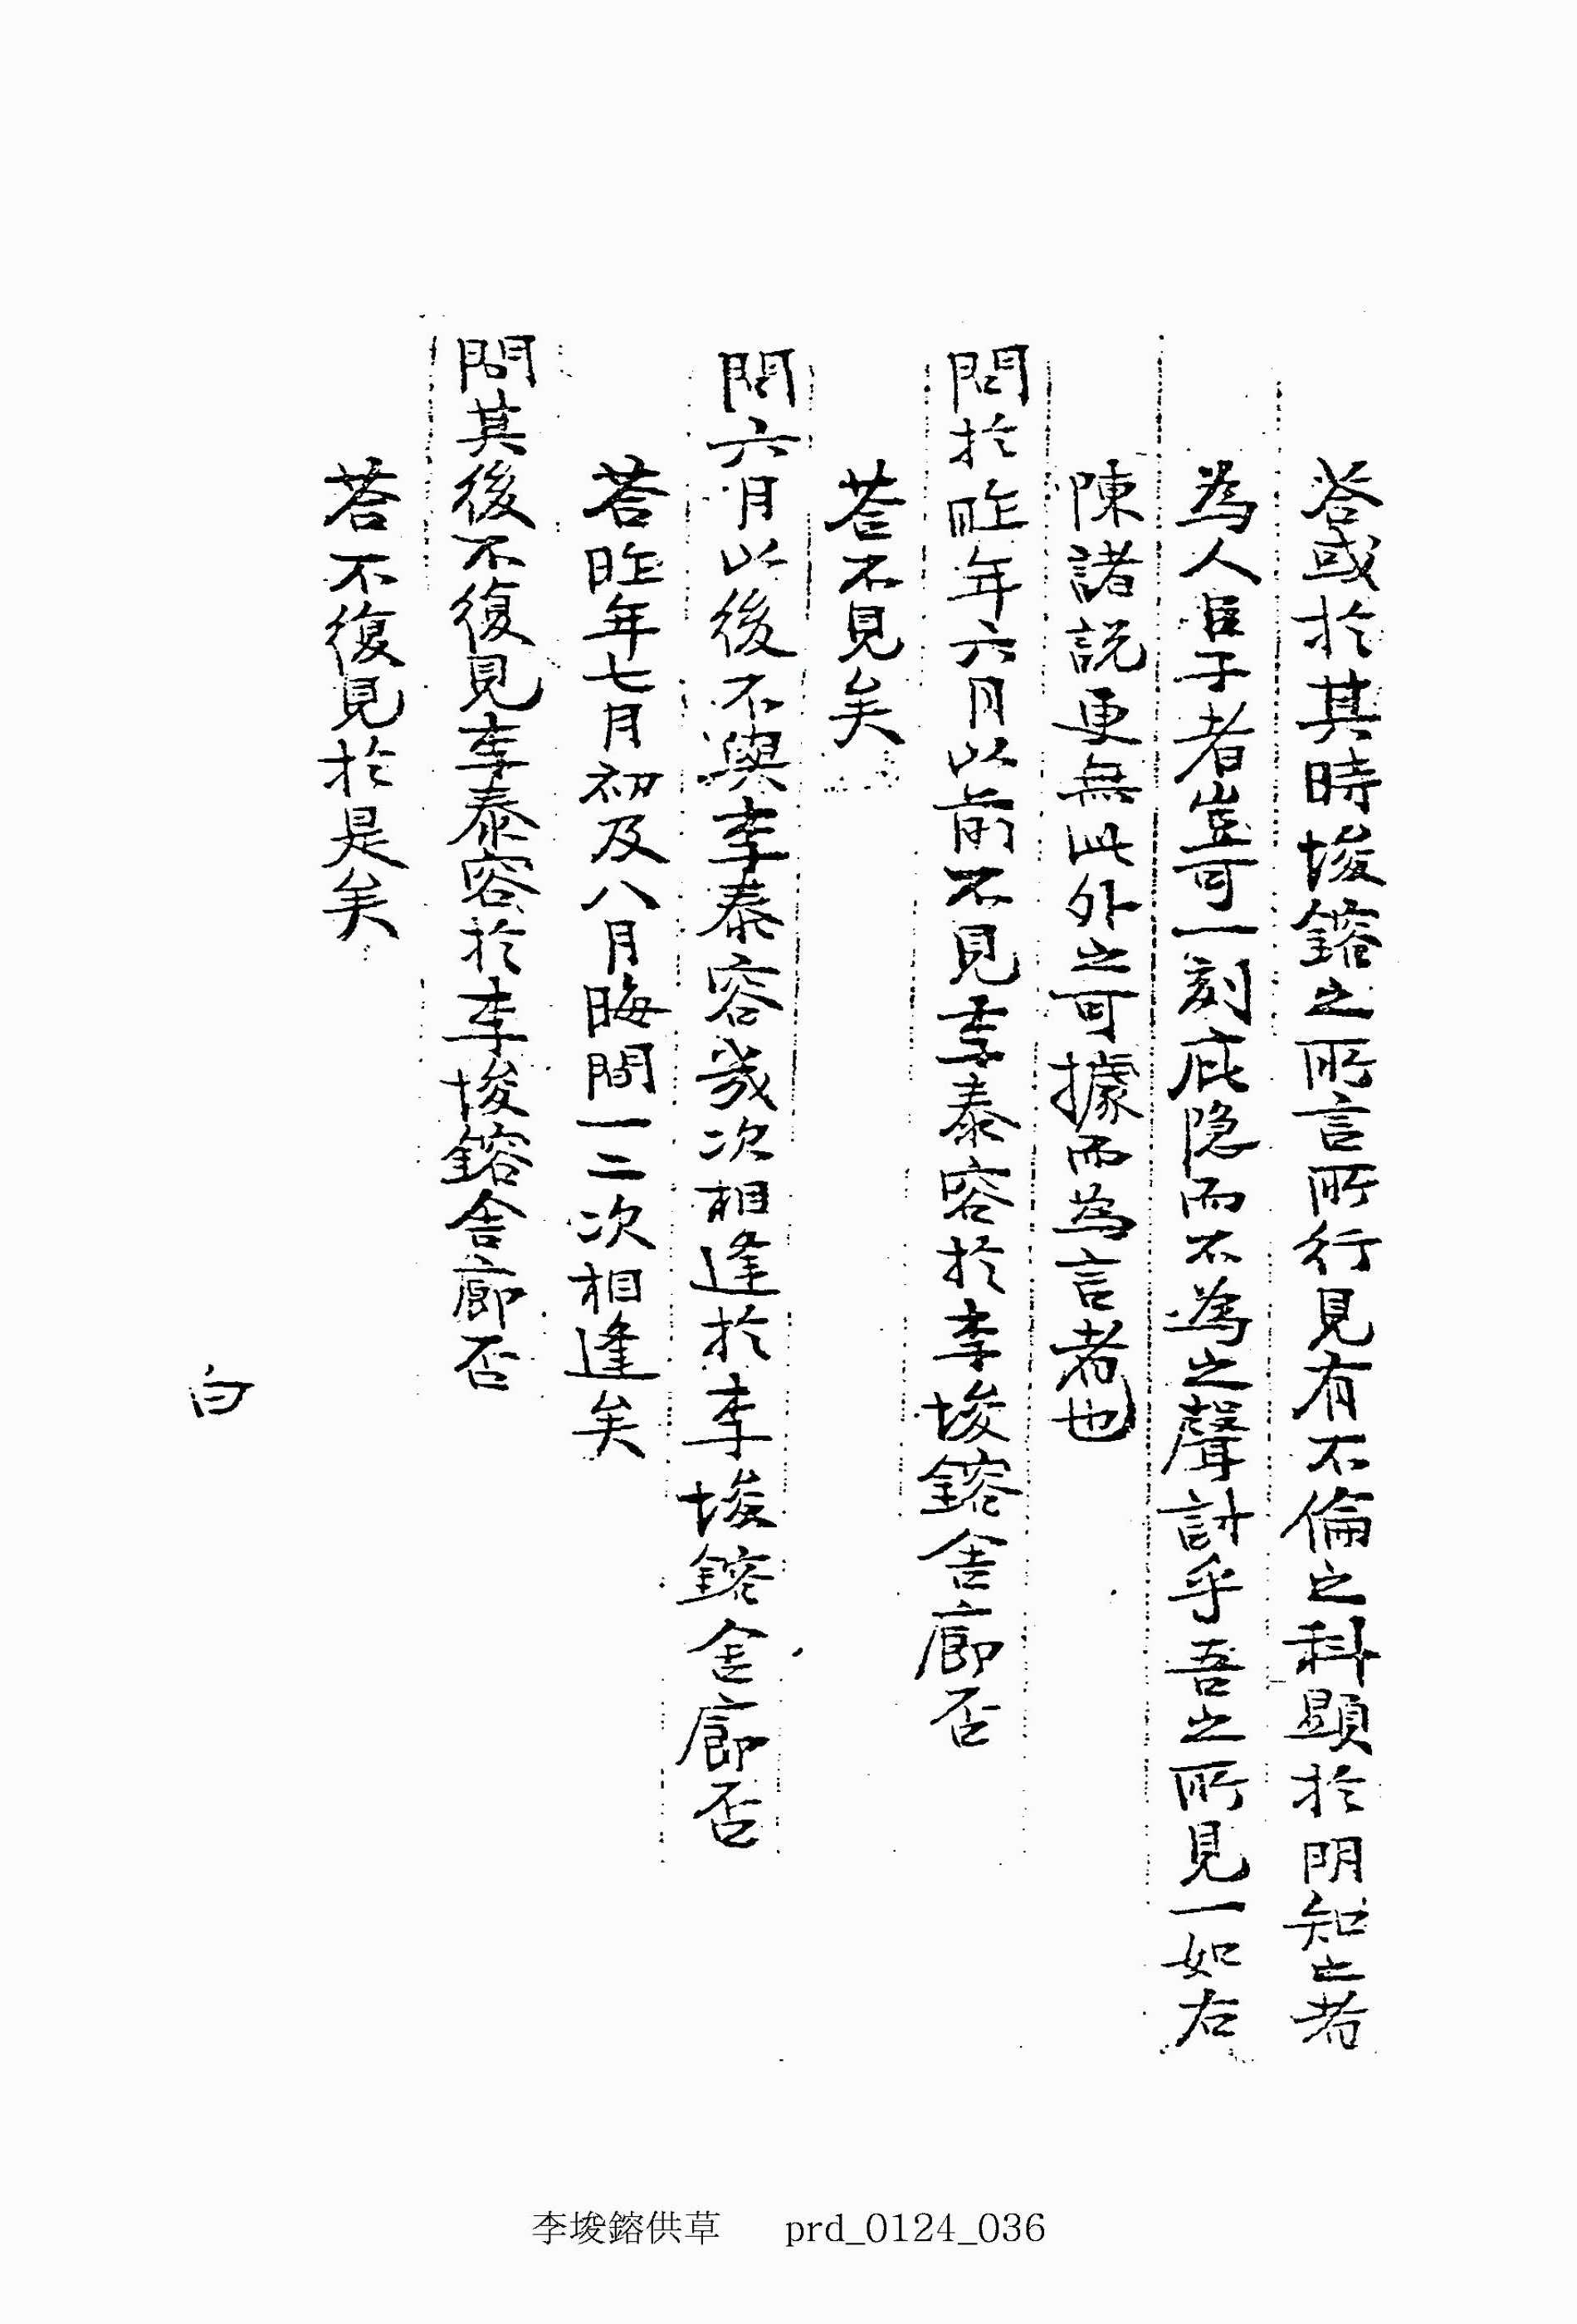 答或於其時埈鎔之所言所行見有不倫之科顯於明知之者
為人臣子者豈可一刻庇隐而不為之聲討乎吾之所見一如右
陳諸説更無此外之可據而為言者也
問於昨年六月以前不見李泰容於李埈鎔舍廊否
答不見矣
問六月以後不與李泰容幾次相逢於李埈鎔舍廊否
答昨年七月初及八月晦間一二次相逢矣
問其後不復見李泰容於李埈鎔舍廊否
答不復見於是矣
白
李埈鎔供草 prd_0124_036